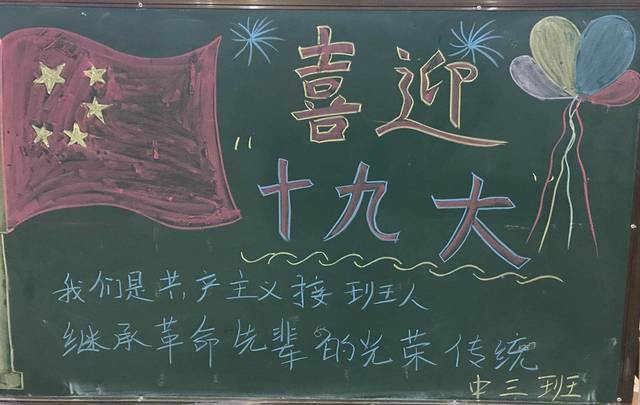 喜迎
"十九大"
我们是共产主义接班人
继承革命先辈的光荣传统
中三班